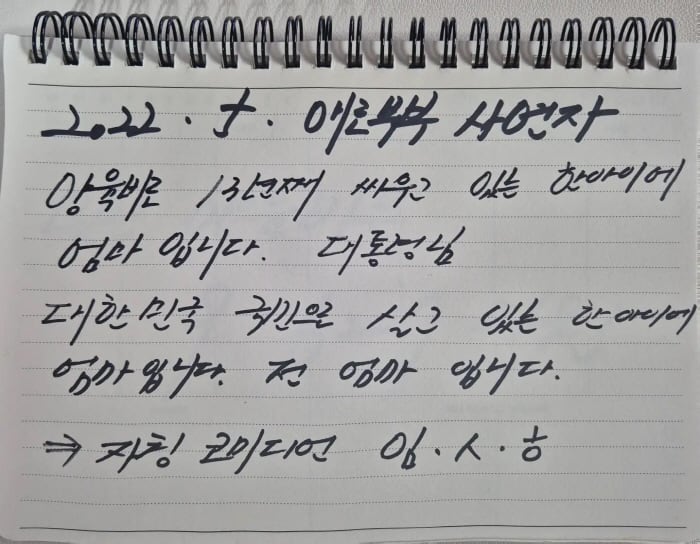 2022. 5. 애로부부 사연자
양육비로 13년째 싸우고 있는 한아이에
엄마 입니다. 대통령님
대한민국 국민으로 살고 있는 한아이에
엄마입니다. 전 엄마 입니다.
⇒ 자칭 코미디언 임.ㅅ.ㅎ